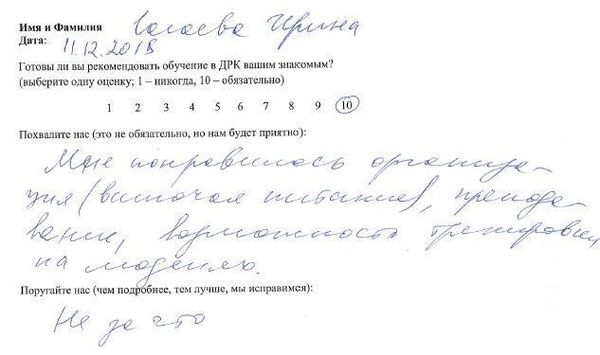 Имя и Фамилия Ирина
Дата: 11.12.2018
Готовы ли вы рекомендовать обучение в ДРК вашим знакомым?
(выберите одну оценку; 1 – никогда, 10 – обязательно)
1 2 3 4 5 6 7 8 9 10
Похвалите нас (это не обязательно, но нам будет приятно):
Мне понравилась организа-
ция (включая питание), препода-
вание, возможность тренировки
на моделях.
Поругайте нас (чем подробнее, тем лучше, мы исправимся):
Не за что